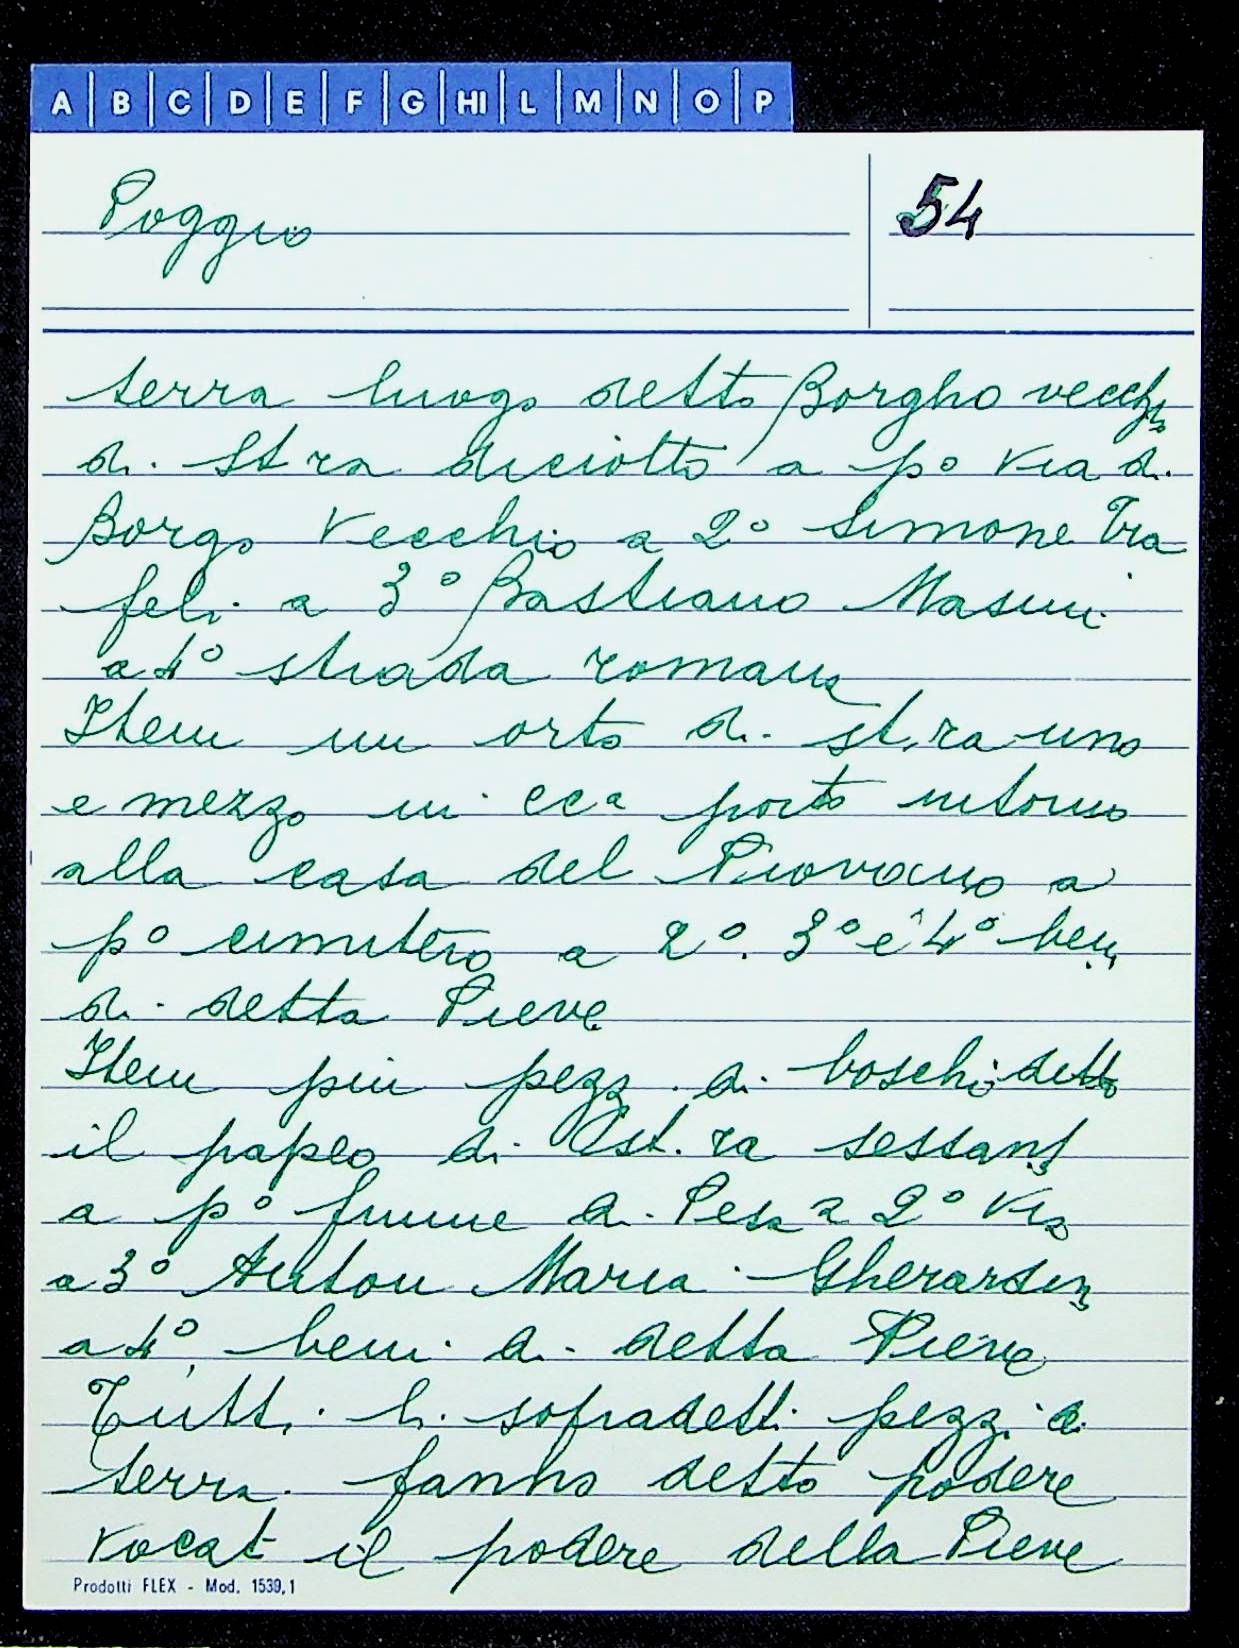 A B C D E F G HI L M N O P
Poggio
54
terra luogo detto Borgho vecchio
di St ra diciotto a p° via di
Borgo Vecchio a 2° Simone Tra
feli a 3° Bastiano Masini
a 4° strada romana
Item un orto di st.ra uno
e mezzo in cca posto intorno
alla casa del Piovano a
p° cimitero a 2°. 3° e 4° beni
di detta Pieve
Item più pezzi di boschi detto
il papeo di st.ra sessanta
a p° fiume di Pesa a 2° Via
a 3° Anton Maria Gherardini
a 4° beni di detta Pieve
Tutti li sopradetti pezzi di
terra fanno detto podere
vocat il podere della Pieve
Prodotti FLEX - Mod. 1539,1